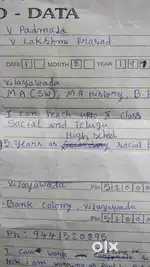 O - DATA
V Padmaja
V Lakshmi Prasad
DATE 1 MONTH 8 YEAR 19
Vijayawada
M A (SW), M.A History, B.
I can teach upto X class
Social and Telugu
High school
15 Years as social
Vijayawada Pin 5 2 0 0 0
Bank Colony Vijayawada
Pin 5 2 0 0
Ph: 9441520895
I can work
Now I am working as
olx